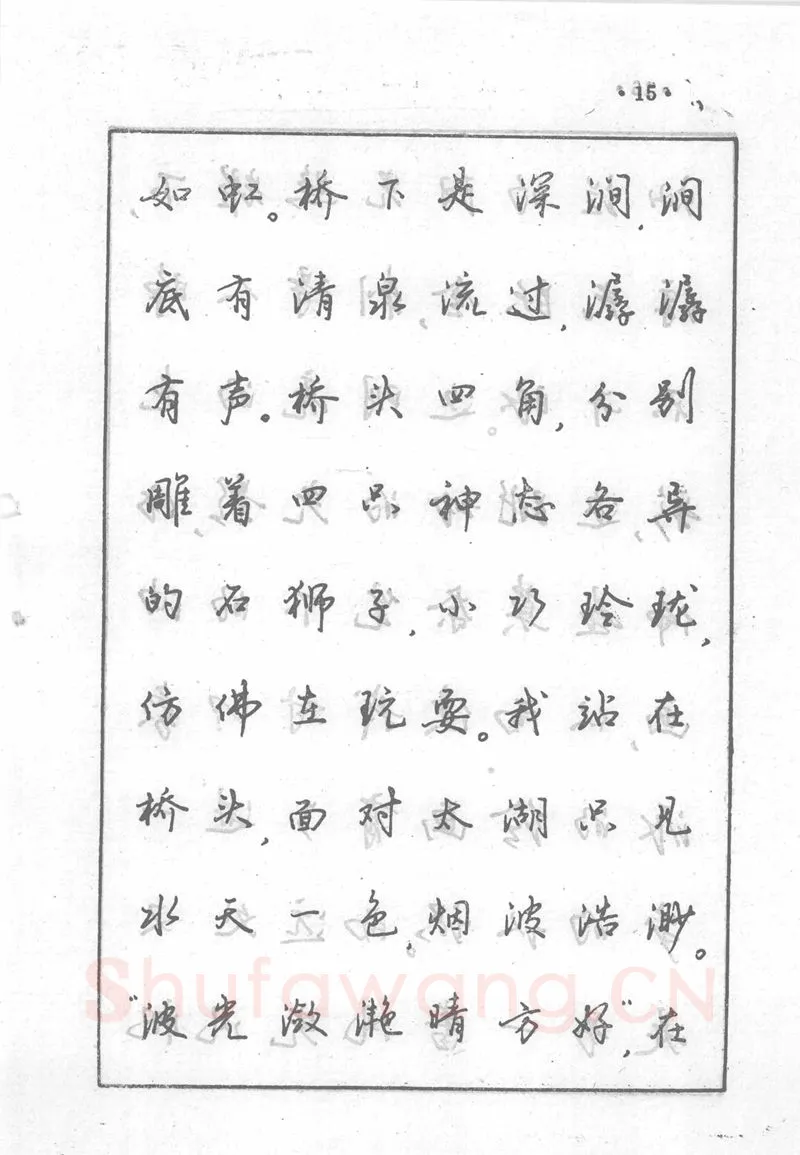 15
如虹。桥下是深涧,涧
底有清泉,流过,潺潺
有声。桥头四角,分别
雕着四只神态各异
的石狮子,小巧玲珑,
仿佛在玩耍。我站在
桥头,面对太湖只见
水天一色,烟波浩渺。
“波光潋滟晴方好”,在
Shufawang.CN